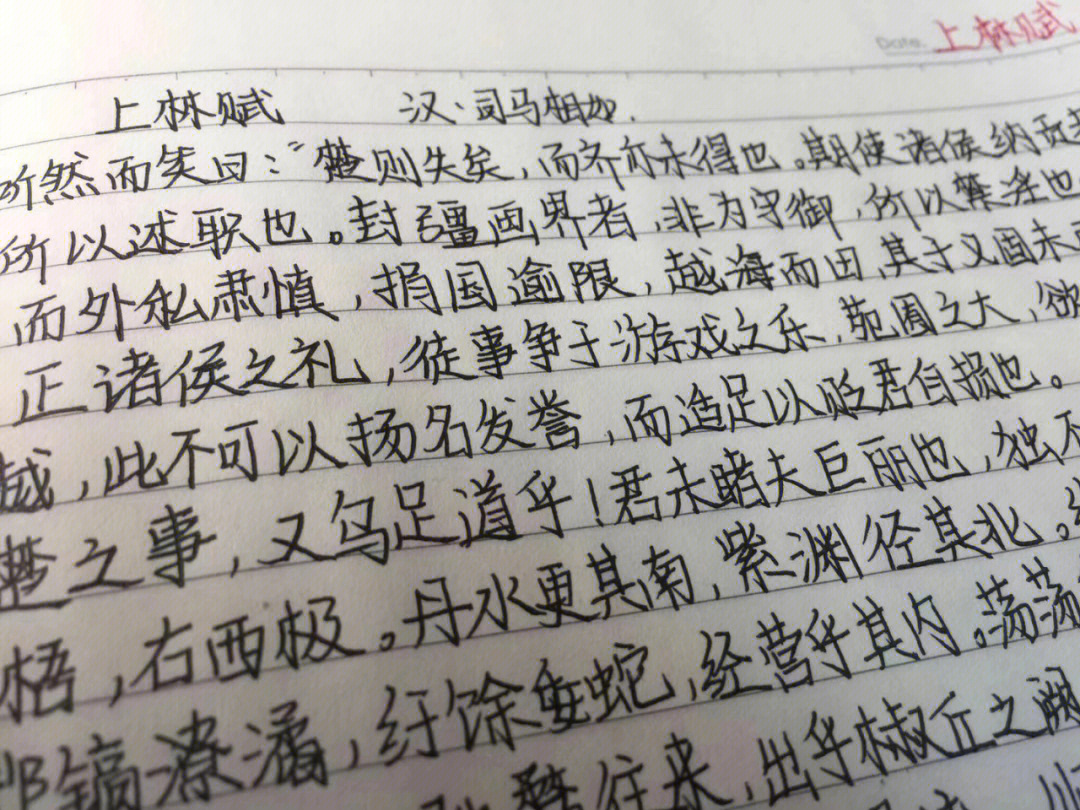 Date. 上林赋
上林赋 汉·司马相如.
听然而笑曰：“楚则失矣，而齐亦未得也。期使诸侯纳贡
所以述职也。封疆画界者，非为守御，所以禁淫也
而外私肃慎，捐国逾限，越海而田，其于义固未
正诸侯之礼，徒事争于游戏之乐，苑囿之大，欲
越，此不可以扬名发誉，而造足以贬君自损也。
楚之事，又乌足道乎！君未睹夫巨丽也，独不
梧，右西极。丹水更其南，紫渊径其北。
镐潦潏，纡馀委蛇，经营乎其内。荡荡
往来，出乎椒丘之阙